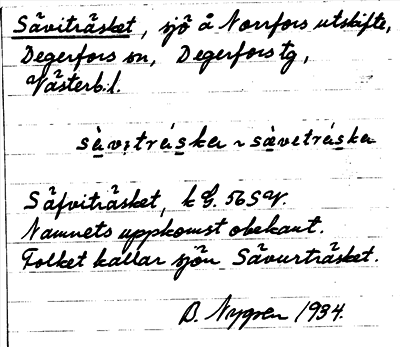 Säviträsket, sjö å Norrfors utskifte,
Degerfors sn, Degerfors tg,
Västerb. l.
sàvitrèska ~ sàvetrèska
Säfviträsket, k G. 56 SV.
Namnets uppkomst obekant.
Folket kallar sjön Sävurträsket.
B. Nygren 1934.